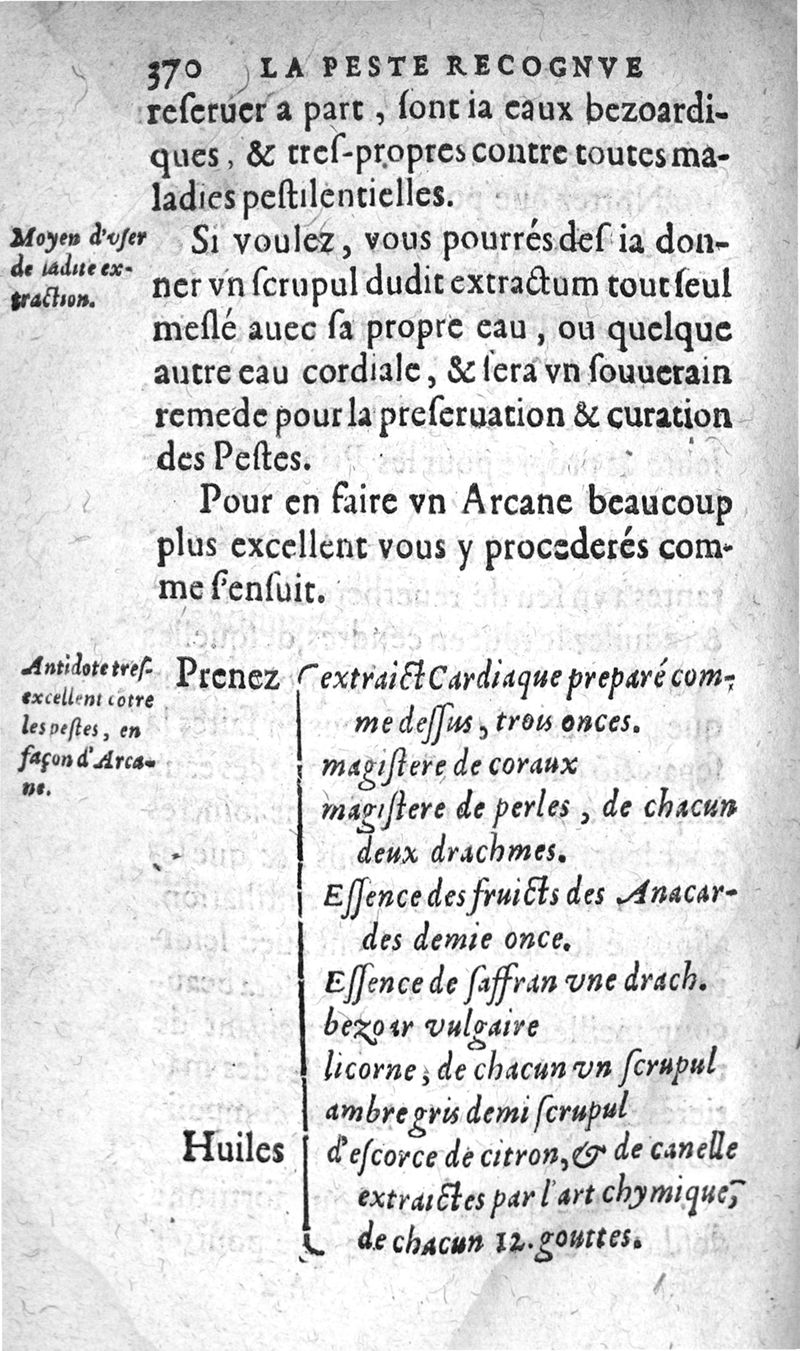 370 LA PESTE RECOGNVE
reſeruer a part , ſont ia eaux bezoardi-
ques , & treſ-propres contre toutes ma-
ladies peſtilentielles.
Moyen d'vſer
de ladite ex-
traction.
Si voulez , vous pourrés deſ ia don-
ner vn ſcrupul dudit extractum tout ſeul
meſlé auec ſa propre eau , ou quelque
autre eau cordiale , & ſera vn ſouuerain
remede pour la preſeruation & curation
des Peſtes.
Pour en faire vn Arcane beaucoup
plus excellent vous y procederés com-
me ſ'enſuit.
Antidote treſ-
excellent cõtre
les peſtes, en
façon d'Arca-
ne.
Prenez extraict Cardiaque preparé com-
me deſſus , trois onces.
magiſtere de coraux
magiſtere de perles , de chacun
deux drachmes.
Eſſence des fruicts des Anacar-
des demie once.
Eſſence de ſaffran vne drach.
bezoar vulgaire
licorne , de chacun vn ſcrupul
ambre gris demi ſcrupul
Huiles d'eſcorce de citron, & de canelle
extraictes par l'art chymique,
de chacun 12. gouttes.